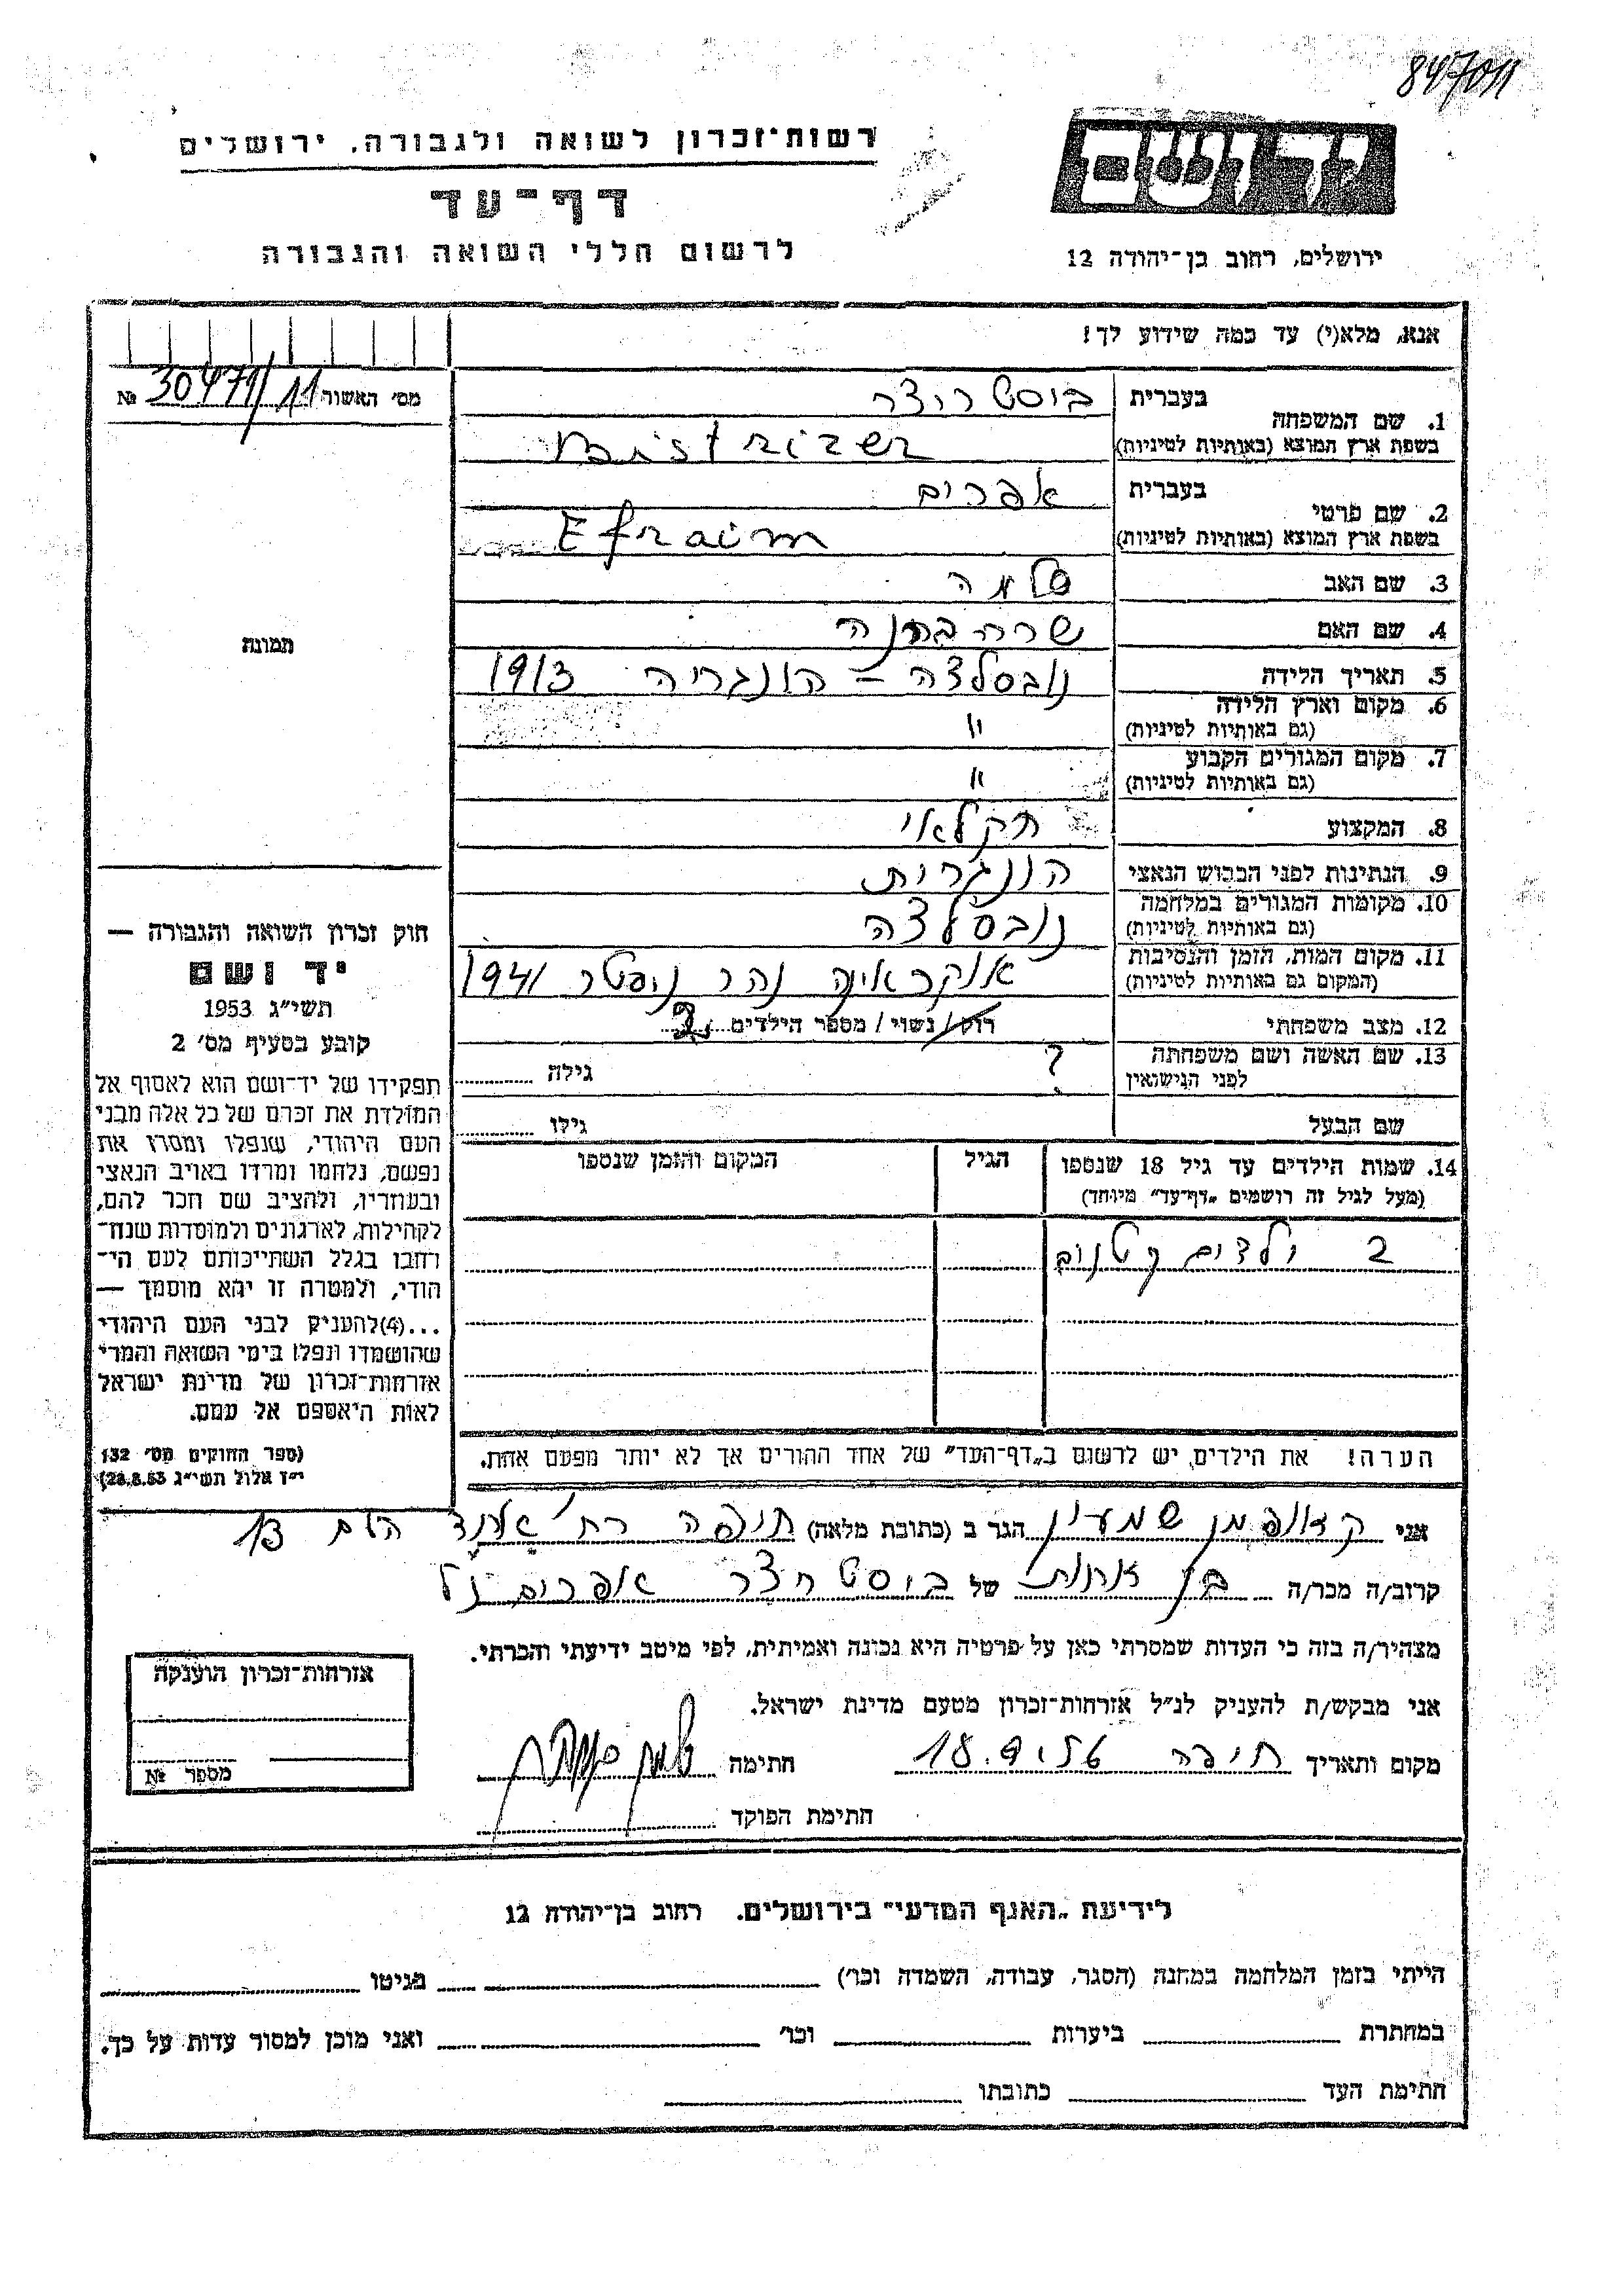 847011
יד ושם
רשות־זכרון לשואה ולגבורה, ירושלים
דף־עד
לרשום חללי השואה והגבורה
ירושלים, רחוב בן־יהודה 12
אנא, מלא(י) עד כמה שידוע לך!
מס' האשור 30471/11 №
1. שם המשפחה
בעברית בוסטריצר
בשפת ארץ המוצא (באותיות לטיניות) Bistrizer
2. שם פרטי
בעברית אפרים
בשפת ארץ המוצא (באותיות לטיניות) Efraim
3. שם האב שלמה
4. שם האם שרה
5. תאריך הלידה נובסלצה – הונגריה 1913
6. מקום וארץ הלידה
(גם באותיות לטיניות) "
7. מקום המגורים הקבוע
(גם באותיות לטיניות) "
8. המקצוע חקלאי
9. הנתינות לפני הכבוש הנאצי הונגרית
10. מקומות המגורים במלחמה
(גם באותיות לטיניות) נובסלצה
11. מקום המות, הזמן והנסיבות
(המקום גם באותיות לטיניות) אוקראינה נהר 1941
12. מצב משפחתי רוק/נשוי/מספר הילדים 2
13. שם האשה ושם משפחתה
לפני הנישואין ? גילה
שם הבעל גילו
14. שמות הילדים עד גיל 18 שנספו
(מעל לגיל זה רושמים „דף־עד" מיוחד)
הגיל
המקום והזמן שנספו
2 ילדים קטנים
הערה! את הילדים יש לרשום ב„דף־העד" של אחד ההורים אך לא יותר מפעם אחת.
תמונה
חוק זכרון השואה והגבורה —
יד ושם
תשי״ג 1953
קובע בסעיף מס' 2
תפקידו של יד־ושם הוא לאסוף אל
המולדת את זכרם של כל אלה מבני
העם היהודי, שנפלו ומסרו את
נפשם, נלחמו ומרדו באויב הנאצי
ובעוזריו, ולהציב שם וזכר להם,
לקהילות, לארגונים ולמוסדות שנח־
רבו בגלל השתייכותם לעם הי־
הודי, ולמטרה זו יהא מוסמך —
...(4) להעניק לבני העם היהודי
שהושמדו ונפלו בימי השואה והמרי
אזרחות־זכרון של מדינת ישראל
לאות היאספם אל עמם.
(ספר החוקים מס' 132
י״ז אלול תשי״ג 28.8.53)
אני קאופמן שמעון הגר ב (כתובת מלאה) חיפה רח' אחד העם 13
קרוב/ה מכר/ה בן אחות של בוסטריצר אפרים נ״ל
מצהיר/ה בזה כי העדות שמסרתי כאן על פרטיה היא נכונה ואמיתית, לפי מיטב ידיעתי והכרתי.
אני מבקש/ת להעניק לנ״ל אזרחות־זכרון מטעם מדינת ישראל.
מקום ותאריך חיפה 18.9.56 חתימה
חתימת הפוקד
אזרחות־זכרון הוענקה
מספר №
לידיעת „האגף המדעי" בירושלים. רחוב בן־יהודה 12
הייתי בזמן המלחמה במחנה (הסגר, עבודה, השמדה וכו') בגיטו
במחתרת ביערות וכו' ואני מוכן למסור עדות על כך.
חתימת העד כתובתו